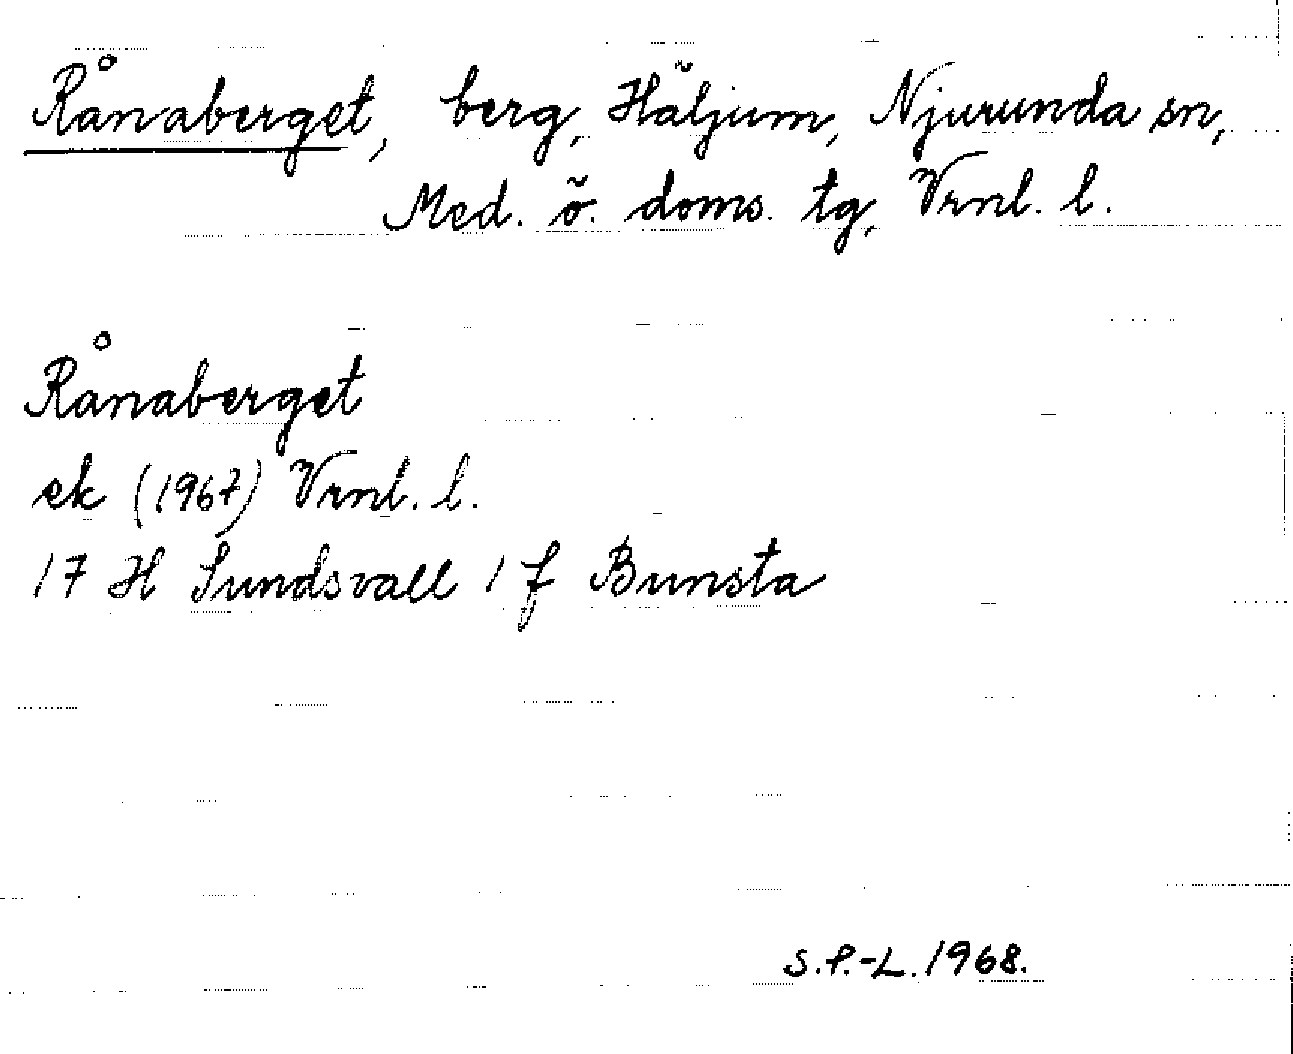 Rånaberget, berg, Häljum, Njurunda sn,
Med. ö. doms. tg, Vrnl. l.
Rånaberget
ek (1967) Vrnl. l.
17 H Sundsvall 1 f Bunsta
S.P.-L. 1968.